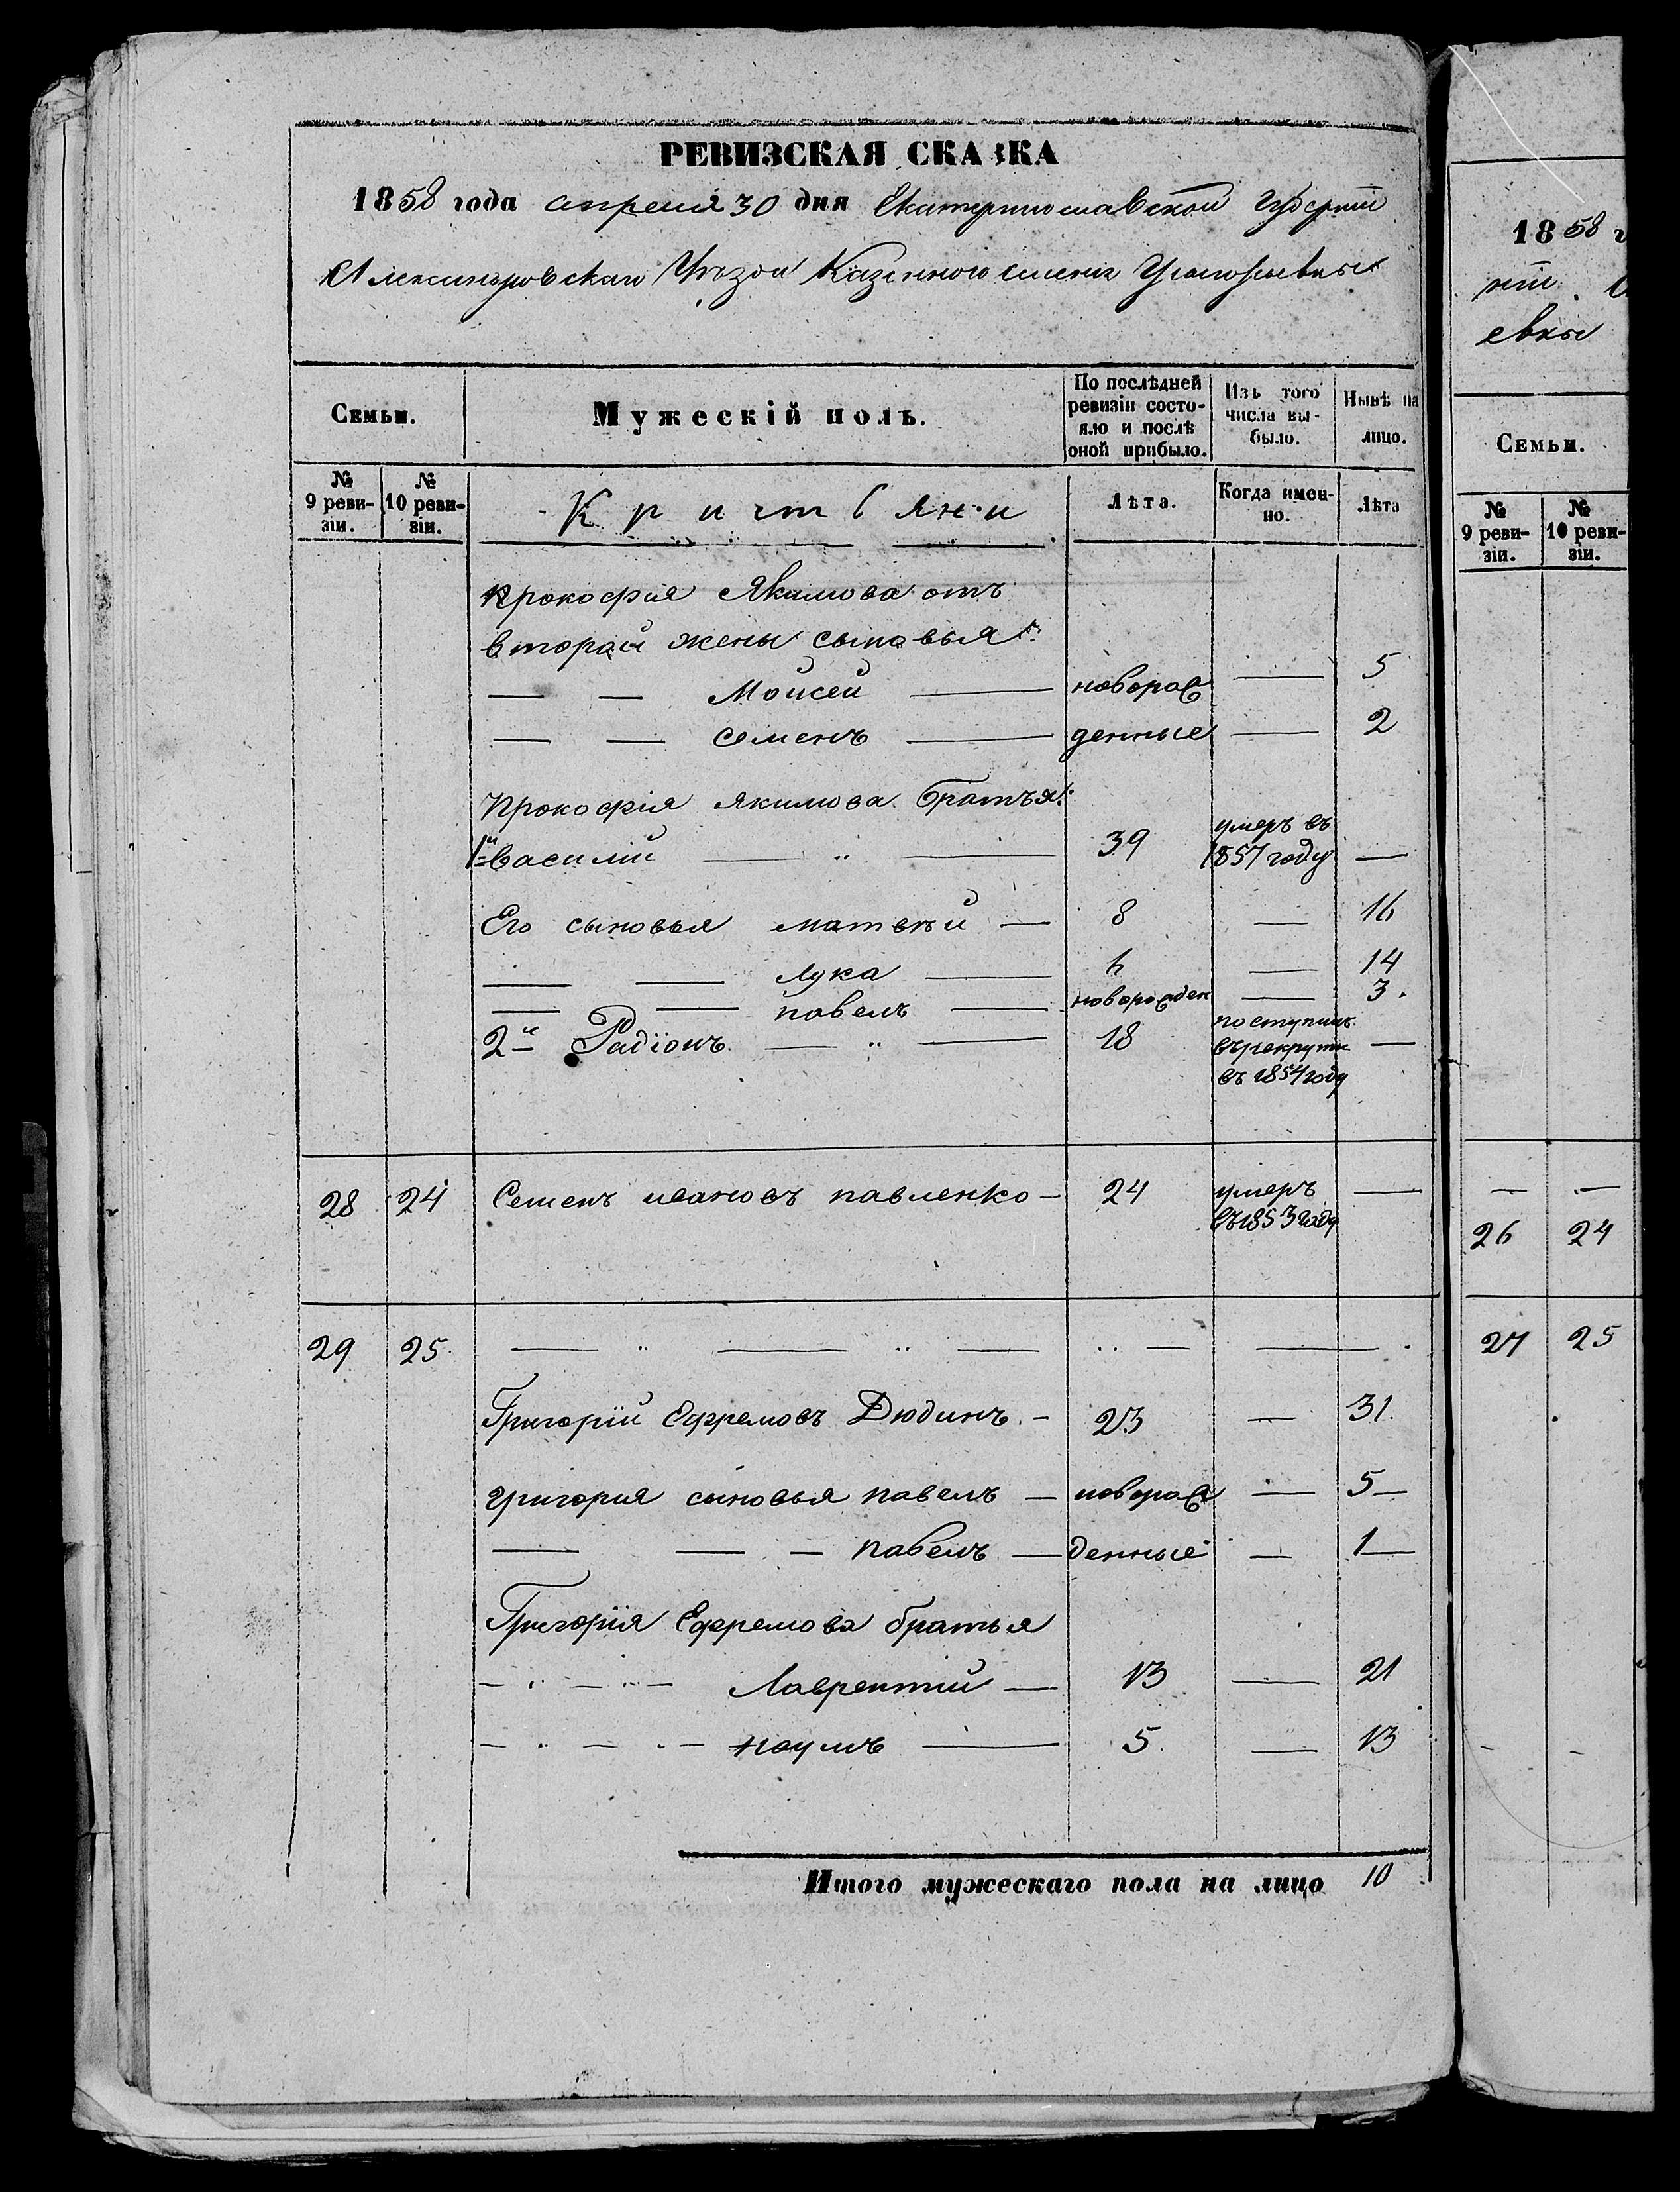 РЕВИЗСКАЯ СКАЗКА
1858 года апреля 30 дня Екатеринославской Губерніи
Александровскаго Уѣзда Казенного селенія
Семьи. Мужескій полъ. По послѣдней ревизіи состояло и послѣ оной прибыло. Изъ того числа выбыло. Нынѣ на лицо.
№ 9 ревизіи. № 10 ревизіи. Лѣта. Когда именно. Лѣта
Прокофия Якимова отъ
второй жены сыновья:
— — Моисей — новорож — 5
— — Семенъ — денные — 2
Прокофія Якимова братья:
1й Василий — " — 39 умеръ въ 1857 году —
Его сыновья матвѣй — 8 — 16
— — лука — 6 — 14
— — павелъ — новорожден — 3.
2й Радіонъ — " — 18 поступилъ въ рекруты въ 1854 году —
28 24 Семенъ ивановъ павленко — 24 умеръ въ 1853 году —
29 25 — " — " — " — — .
Григорій Ефремовъ Дюдинъ. — 23 — 31.
григория сыновья павелъ — новорож — 5 —
— — — павелъ — денные — 1 —
Григорія Ефремова братья
— " — " — Лаврентій — 13 — 21
— " — " — наумъ — 5. — 13
Итого мужескаго пола на лицо 10
1858 г
ніи.
евки
Семьи.
№ 9 ревизіи. № 10 ревизіи.
— —
26 24
27 25